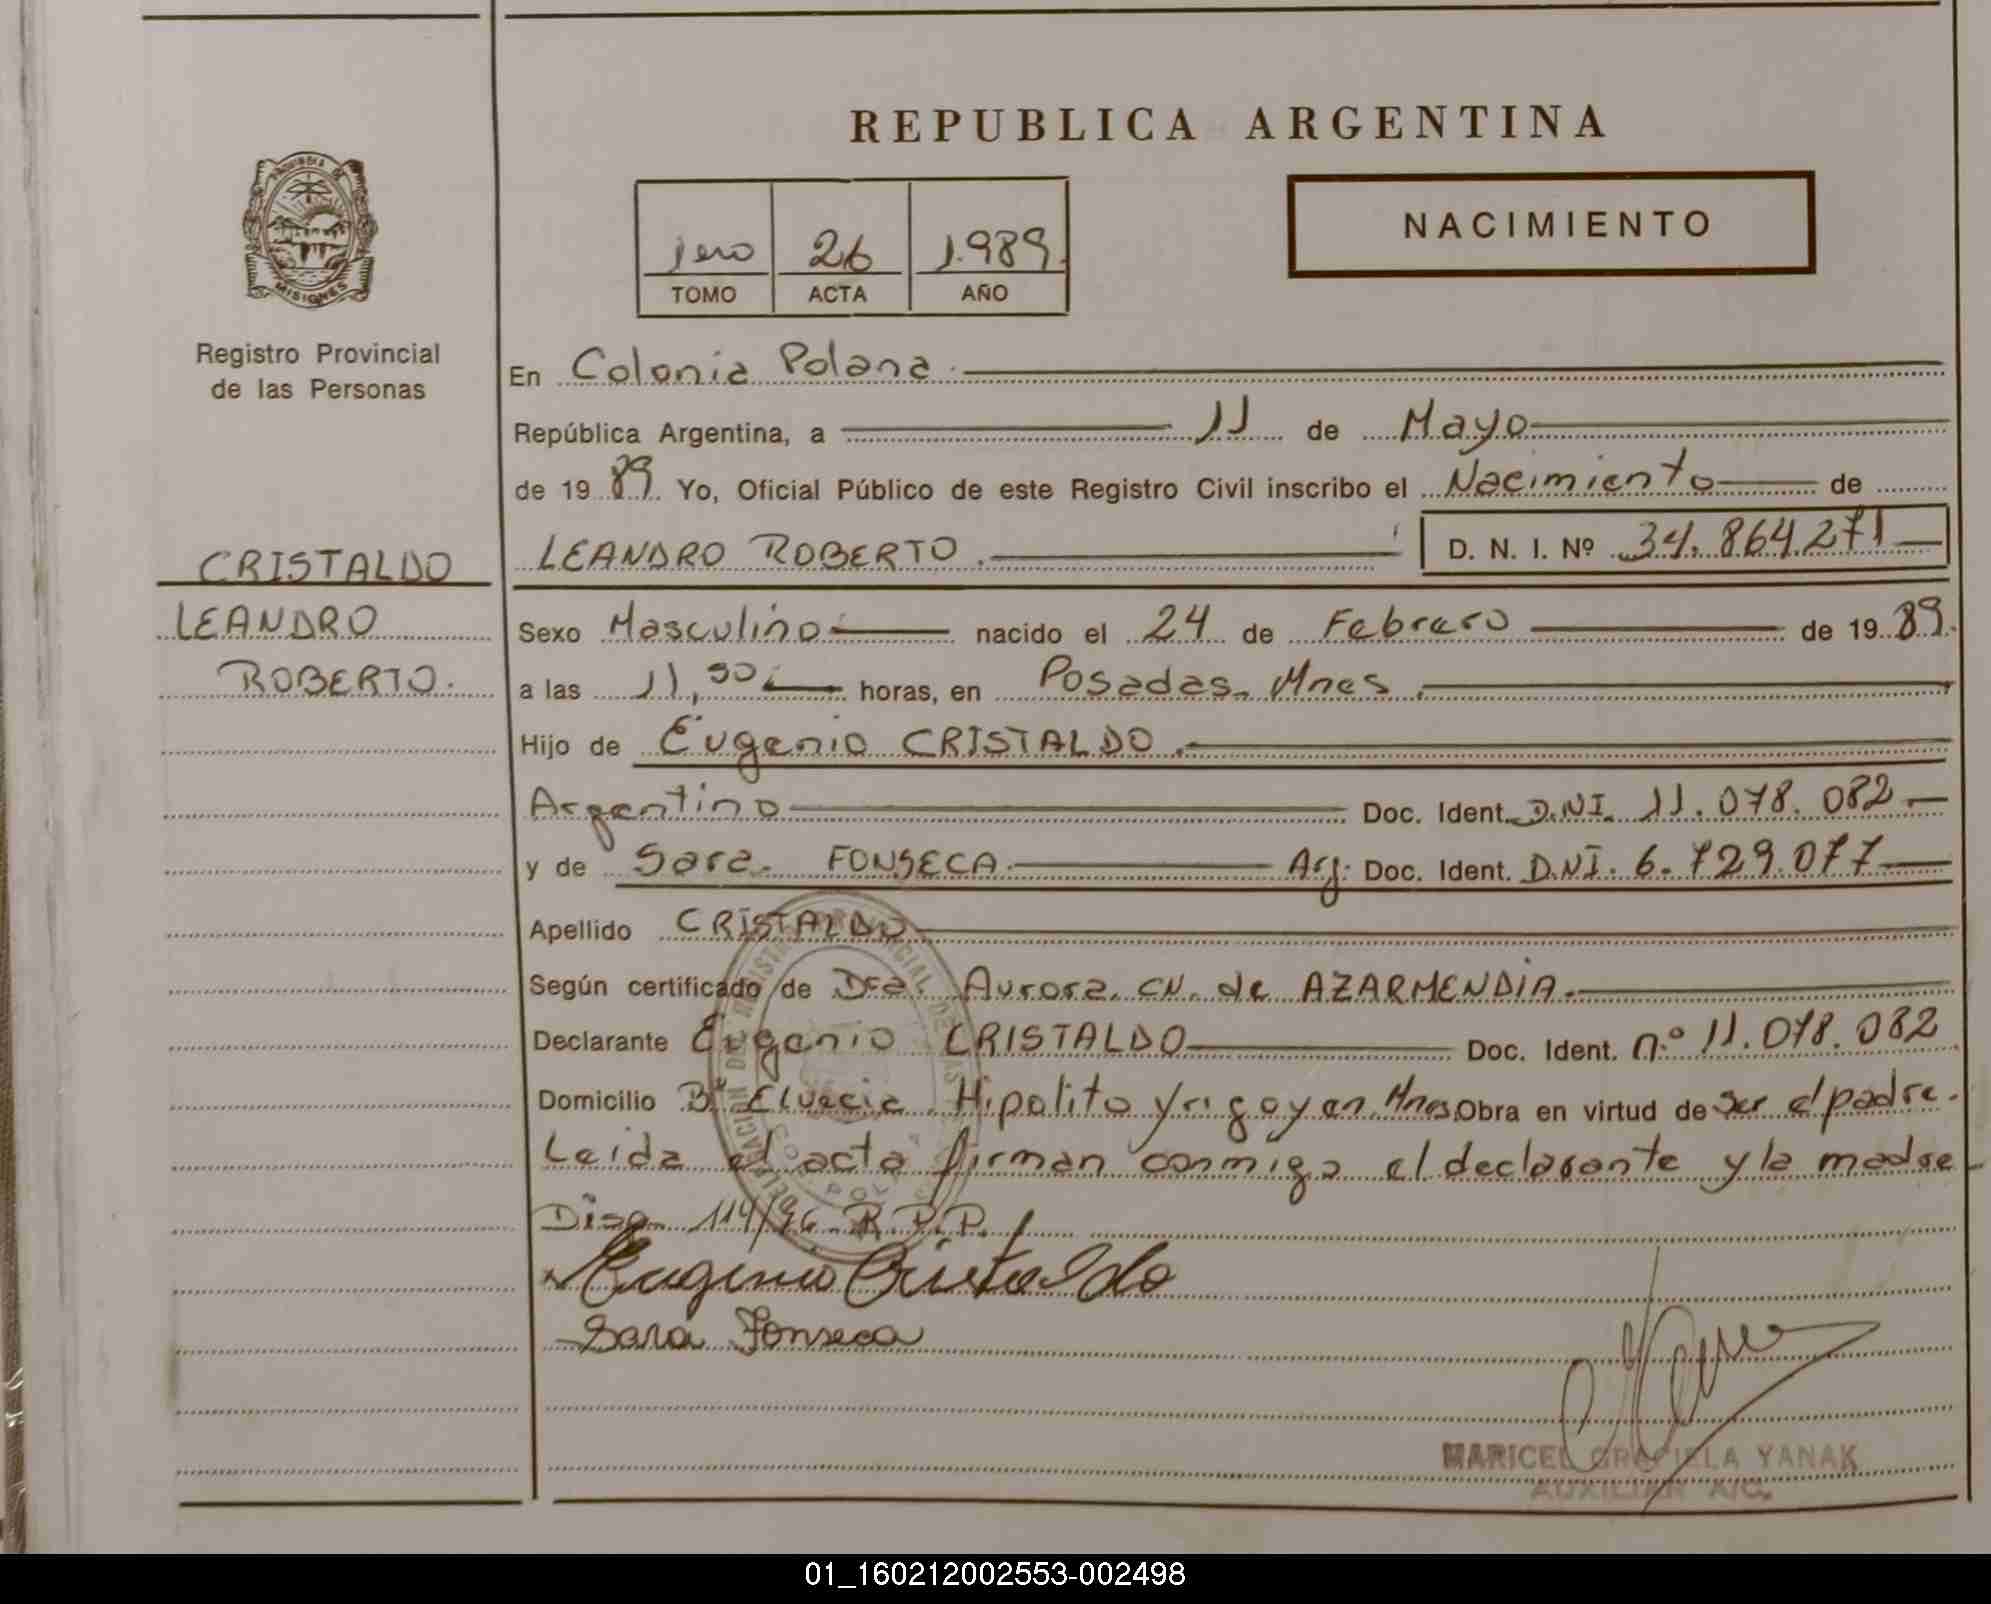 REPUBLICA ARGENTINA
NACIMIENTO
1ero 26 1.989.
TOMO ACTA AÑO
PROVINCIA DE
MISIONES
Registro Provincial
de las Personas
En Colonia Polana.
República Argentina, a 11 de Mayo
de 1989. Yo, Oficial Público de este Registro Civil inscribo el Nacimiento de
CRISTALDO
LEANDRO ROBERTO. D. N. I. Nº 34.864.271
LEANDRO
ROBERTO.
Sexo Masculino nacido el 24 de Febrero de 1989.
a las 11,50 horas, en Posadas. Mnes.
Hijo de Eugenio CRISTALDO.
Argentino Doc. Ident. D.NI. 11.078.082
y de Sara. FONSECA. Arg: Doc. Ident. D.NI. 6.729.077
Apellido CRISTALDO
Según certificado de Dra. Aurora. CN. de AZARMENDIA.
Declarante Eugenio CRISTALDO Doc. Ident. n.º 11.078.082
Domicilio Bº Elvecia. Hipolito Yrigoyen. Mnes. Obra en virtud de ser el padre.
Leida el acta firman conmigo el declarante y la madre
Disp. 114/96. R.P.P.
Eugenio Cristaldo
Sara Fonseca
MARICEL GRACIELA YANAK
AUXILIAR
01_160212002553-002498